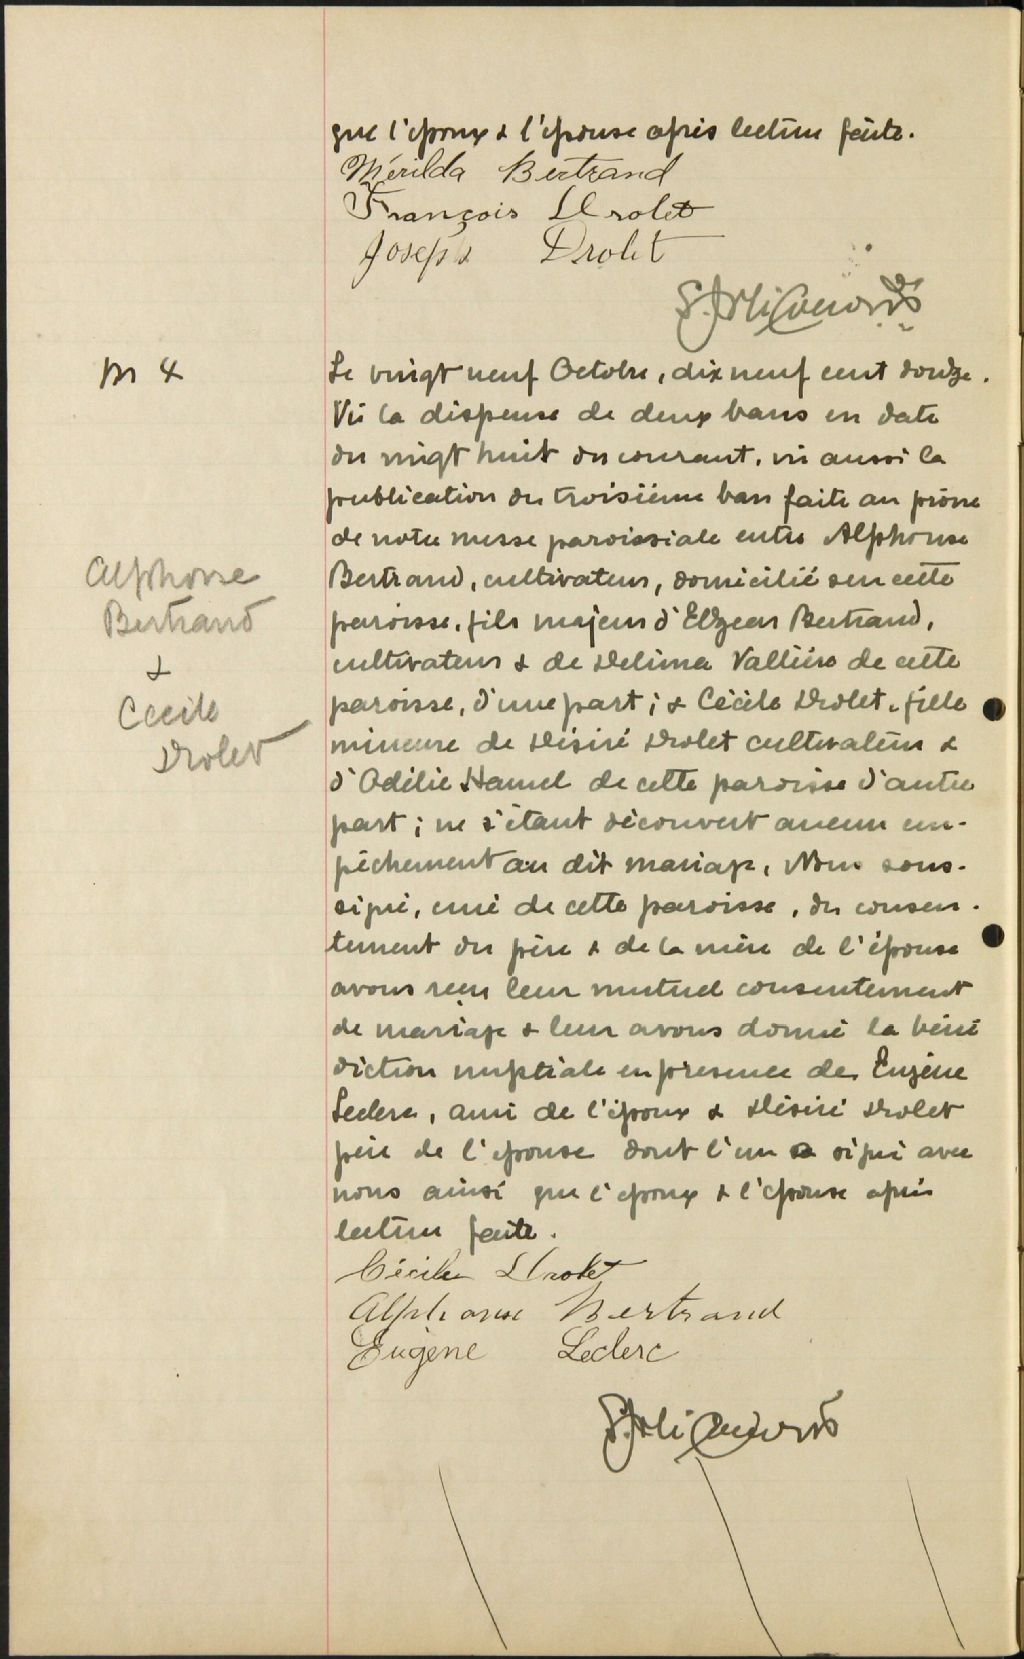 que l'epoux & l'epouse après lecture faite.
Mérilda Bertrand
François Drolet
Joseph Drolet
M 4
Le vingt neuf Octobre, dix neuf cent douze.
Vu la dispense de deux bans en date
du vingt huit du courant, vu aussi la
publication du troisième ban faite au prône
de notre messe paroissiale entre Alphonse
Bertrand, cultivateur, domicilié en cette
paroisse, fils majeur d'Elzear Bertrand,
cultivateur & de Delima Vallière de cette
paroisse, d'une part; & Cécile Drolet, fille
mineure de Désiré Drolet cultivateur &
d'Odélie Hamel de cette paroisse d'autre
part; ne s'étant découvert aucun em-
pêchement au dit mariage, Nous sous-
signé, curé de cette paroisse, du consen-
tement du père & de la mère de l'épouse
avons reçu leur mutuel consentement
de mariage & leur avons donné la béné
diction nuptiale en presence de Eugène
Leclerc, ami de l'époux & Désiré Drolet
père de l'epouse dont l'un a signé avec
nous ainsi que l'epoux & l'epouse après
lecture faite.
Alphonse
Bertrand
&
Cecile
Drolet
Cécile Drolet
Alphonse Bertrand
Eugène Leclerc